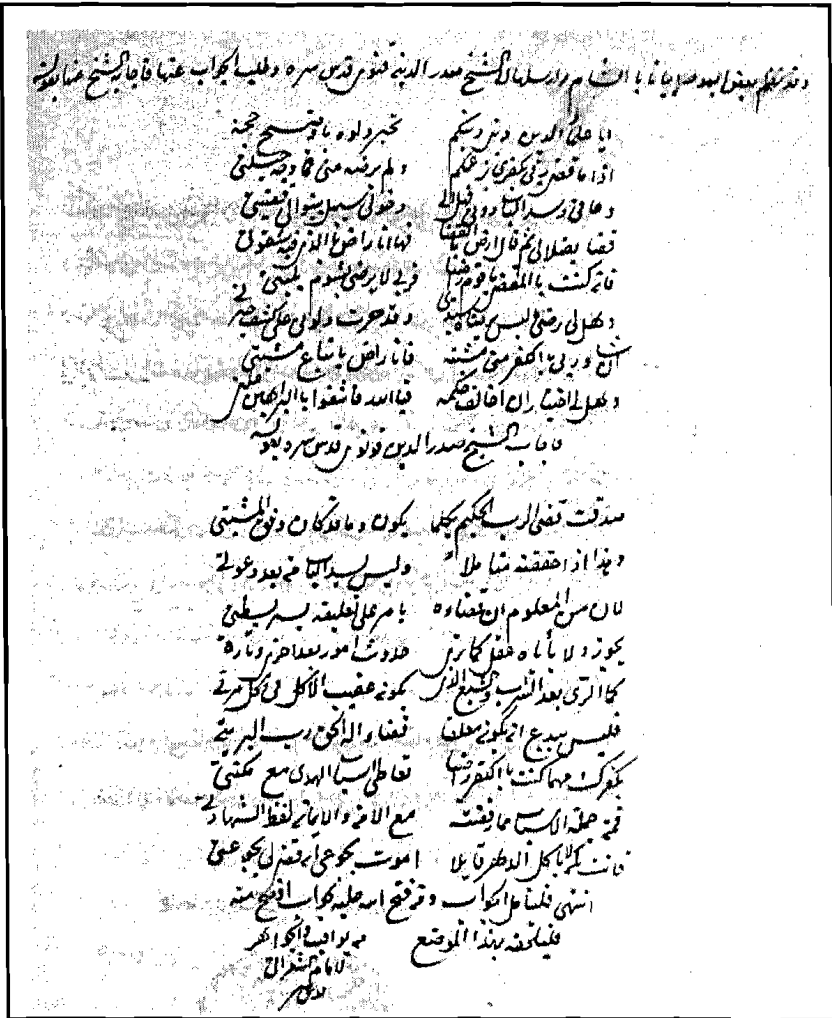 وقد نظم بعض اليهود ابياتا بالشام وارسلها الى الشيخ صدر الدين قنوى قدس سره وطلب الجواب عنها فاجابه الشيخ عنها بقوله
ايا علماء الدين ذمى دينكم تحير دلوه باوضح حجة
اذا ما قضى ربى بكفرى بزعمكم ولم يرضه منى فما وجه حيلتى
دعانى وسد الباب دونى فهل الى دخولى سبيل بينوا لى قضيتى
قضا بضلالى ثم قال ارض بالقضا فها انا راض بالذى فيه شقوتى
فان كنت بالمقضى يا قوم راضيا فربى لا يرضى بشوم بليتى
وهل لى رضى ما ليس يرضاه سيدى وقد حرت دلونى على كشف حيرتى
اذا شاء ربى بالكفر منى مشيئة فانا راض باتباع مشيتى
وهل لى اختيار ان اخالف حكمه فبالله فاشفوا بالبراهين علتى
فاجاب الشيخ صدر الدين قونوى قدس سره بقوله
صدقت قضى الرب الحكيم بكلما يكون وما قد كان وفق المشيتى
وهذا اذا حققته متاملا وليس لسد الباب من بعد دعوتى
لان من المعلوم ان قضاءه بامر على تعليقه بشريطتى
يجوز ولا ياباه عقل كما ترى حدوث امور بعد اخرى وتارة
كما الرى بعد الشرب والشبع الذى يكون عقيب الاكل فى كل مرتى
فليس ببدع ان يكون معلقا قضاء اله الحق رب البريتى
بكفرك مهما كنت بالكفر راضيا تعاطى اسباب الهدى مع مكنتى
فمن جملة الاسباب مما رفضته مع الامن والايمان لفظ الشهادتى
فانت كمن لا ياكل الدهر قايلا اموت بجوعى اذ قضى لى بجوعتى
انتهى فليتامل الجواب ومن فتح الله عليه بجواب اوضح منه
فليلحقه بهذا الموضع من يواقيت والجواهر
للامام الشعرانى